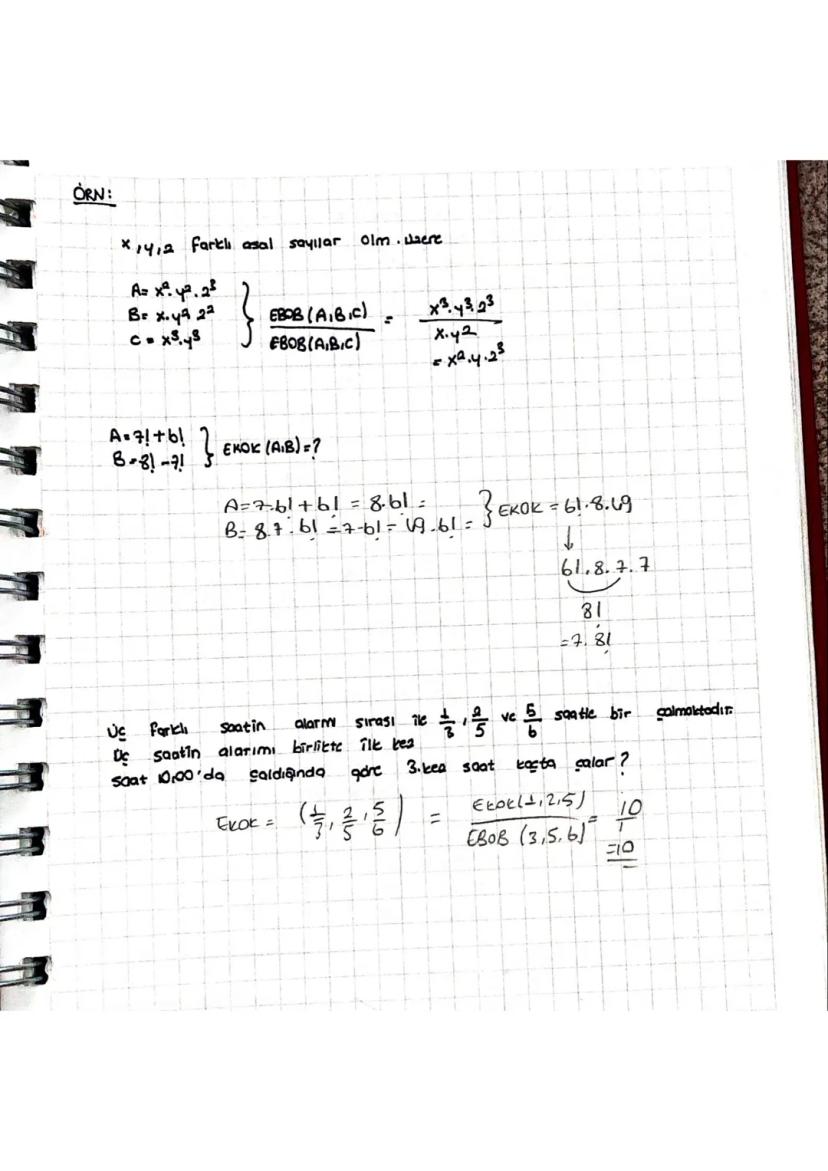 ÖRN:
x,y,z farklı asal sayılar olm. üzere
A= x².y².z³
B= x.y² z²
C= x³.y³
EBOB(A,B,C) / EBOB(A,B,C) = x³.y³.z³ / x.y²
= x².y.z³
A=7!+6!
B=8!-7!
EKOK (A,B)=?
A=7.6!+6! = 8.6! =
B= 8.7.6! = 7-6! = 49.6! =
EKOK = 6!.8.49
↓
6!.8.7.7
8!
=7.8!
Üç farklı saatin alarmı sırası ile 1/3, 2/5 ve 5/6 saatte bir çalmaktadır.
Üç saatin alarımı birlikte ilk kez
saat 10.00'da çaldığında göre 3.kez saat kaçta çalar?
EKOK = (1/3, 2/5, 5/6) = EKOK(1,2,5) / EBOB (3,5,6) = 10/1
=10